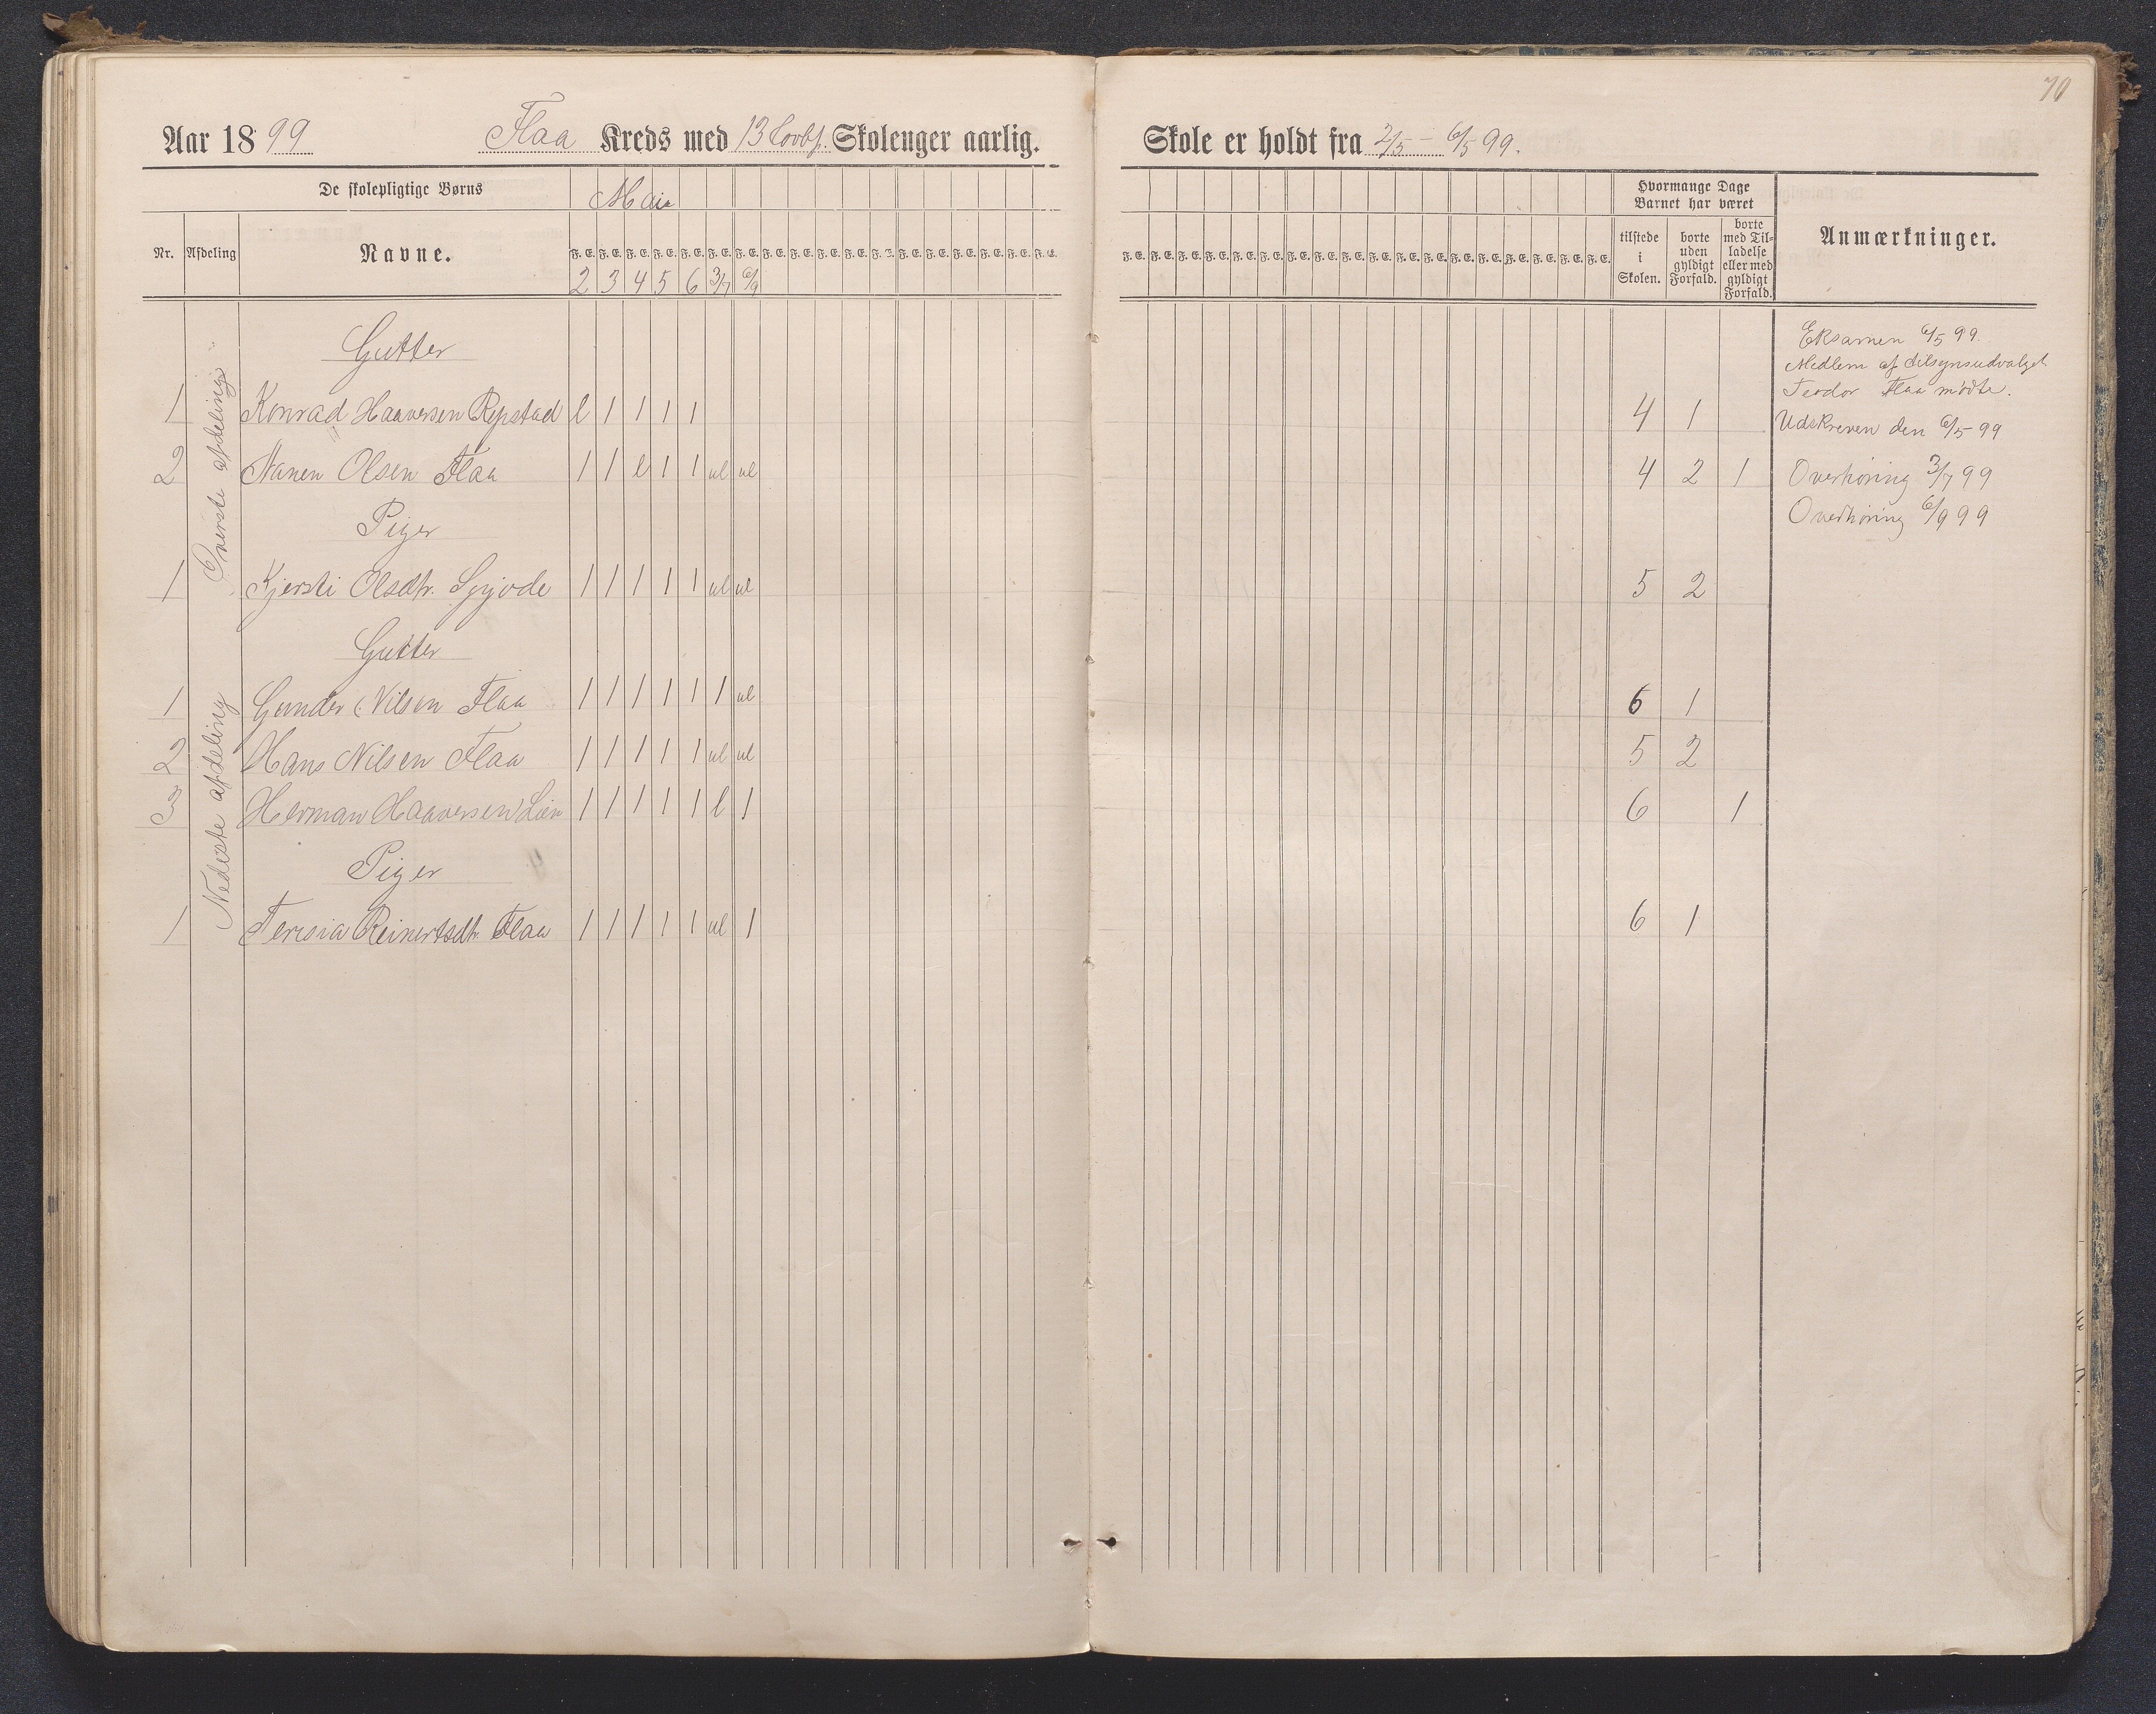 70
Aar 1899 Flaa Kreds med 13 Lovbf. Skolenger aarlig.
Skole er holdt fra 2/5 – 6/5 99.
De skolepligtige Børns
Mai
Nr. Afdeling Navne.
F. E. F. E. F. E. F. E. F. E. F. E. F. E. F. E. F. E. F. E. F. E. F. E. F. E. F. E. F. E. F. E. F. E. F. E.
2 3 4 5 6 3/7 6/9
F. E. F. E. F. E. F. E. F. E. F. E. F. E. F. E. F. E. F. E. F. E. F. E. F. E. F. E. F. E. F. E. F. E. F. E.
Hvormange Dage
Barnet har været
tilstede
i
Skolen.
borte
uden
gyldigt
Forfald.
borte
med Til-
ladelse
eller med
gyldigt
Forfald.
Anmærkninger.
Øverste afdeling
Gutter
Eksamen 6/5 99.
Medlem af tilsynsudvalget
Teodor Flaa mødte.
1 Konrad Haaversen Repstad l 1 1 1 1 4 1 Udskreven den 6/5 99
2 Olsen Flaa 1 1 l 1 1 ul ul 4 2 1 Overhøring 3/7 99
Piger
Overhøring 6/9 99
1 Kjersti Olsdtr. 1 1 1 1 1 ul ul 5 2
Nedeste afdeling
Gutter
1 Gunder Nilsen Flaa 1 1 1 1 1 1 ul 6 1
2 Hans Nilsen Flaa 1 1 1 1 1 ul ul 5 2
3 Herman Haaversen Lien 1 1 1 1 1 l 1 6 1
Piger
1 Teresia Reinertsdtr. Flaa 1 1 1 1 1 ul 1 6 1